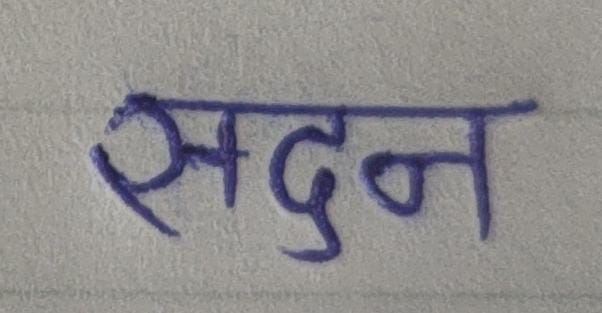 सदन